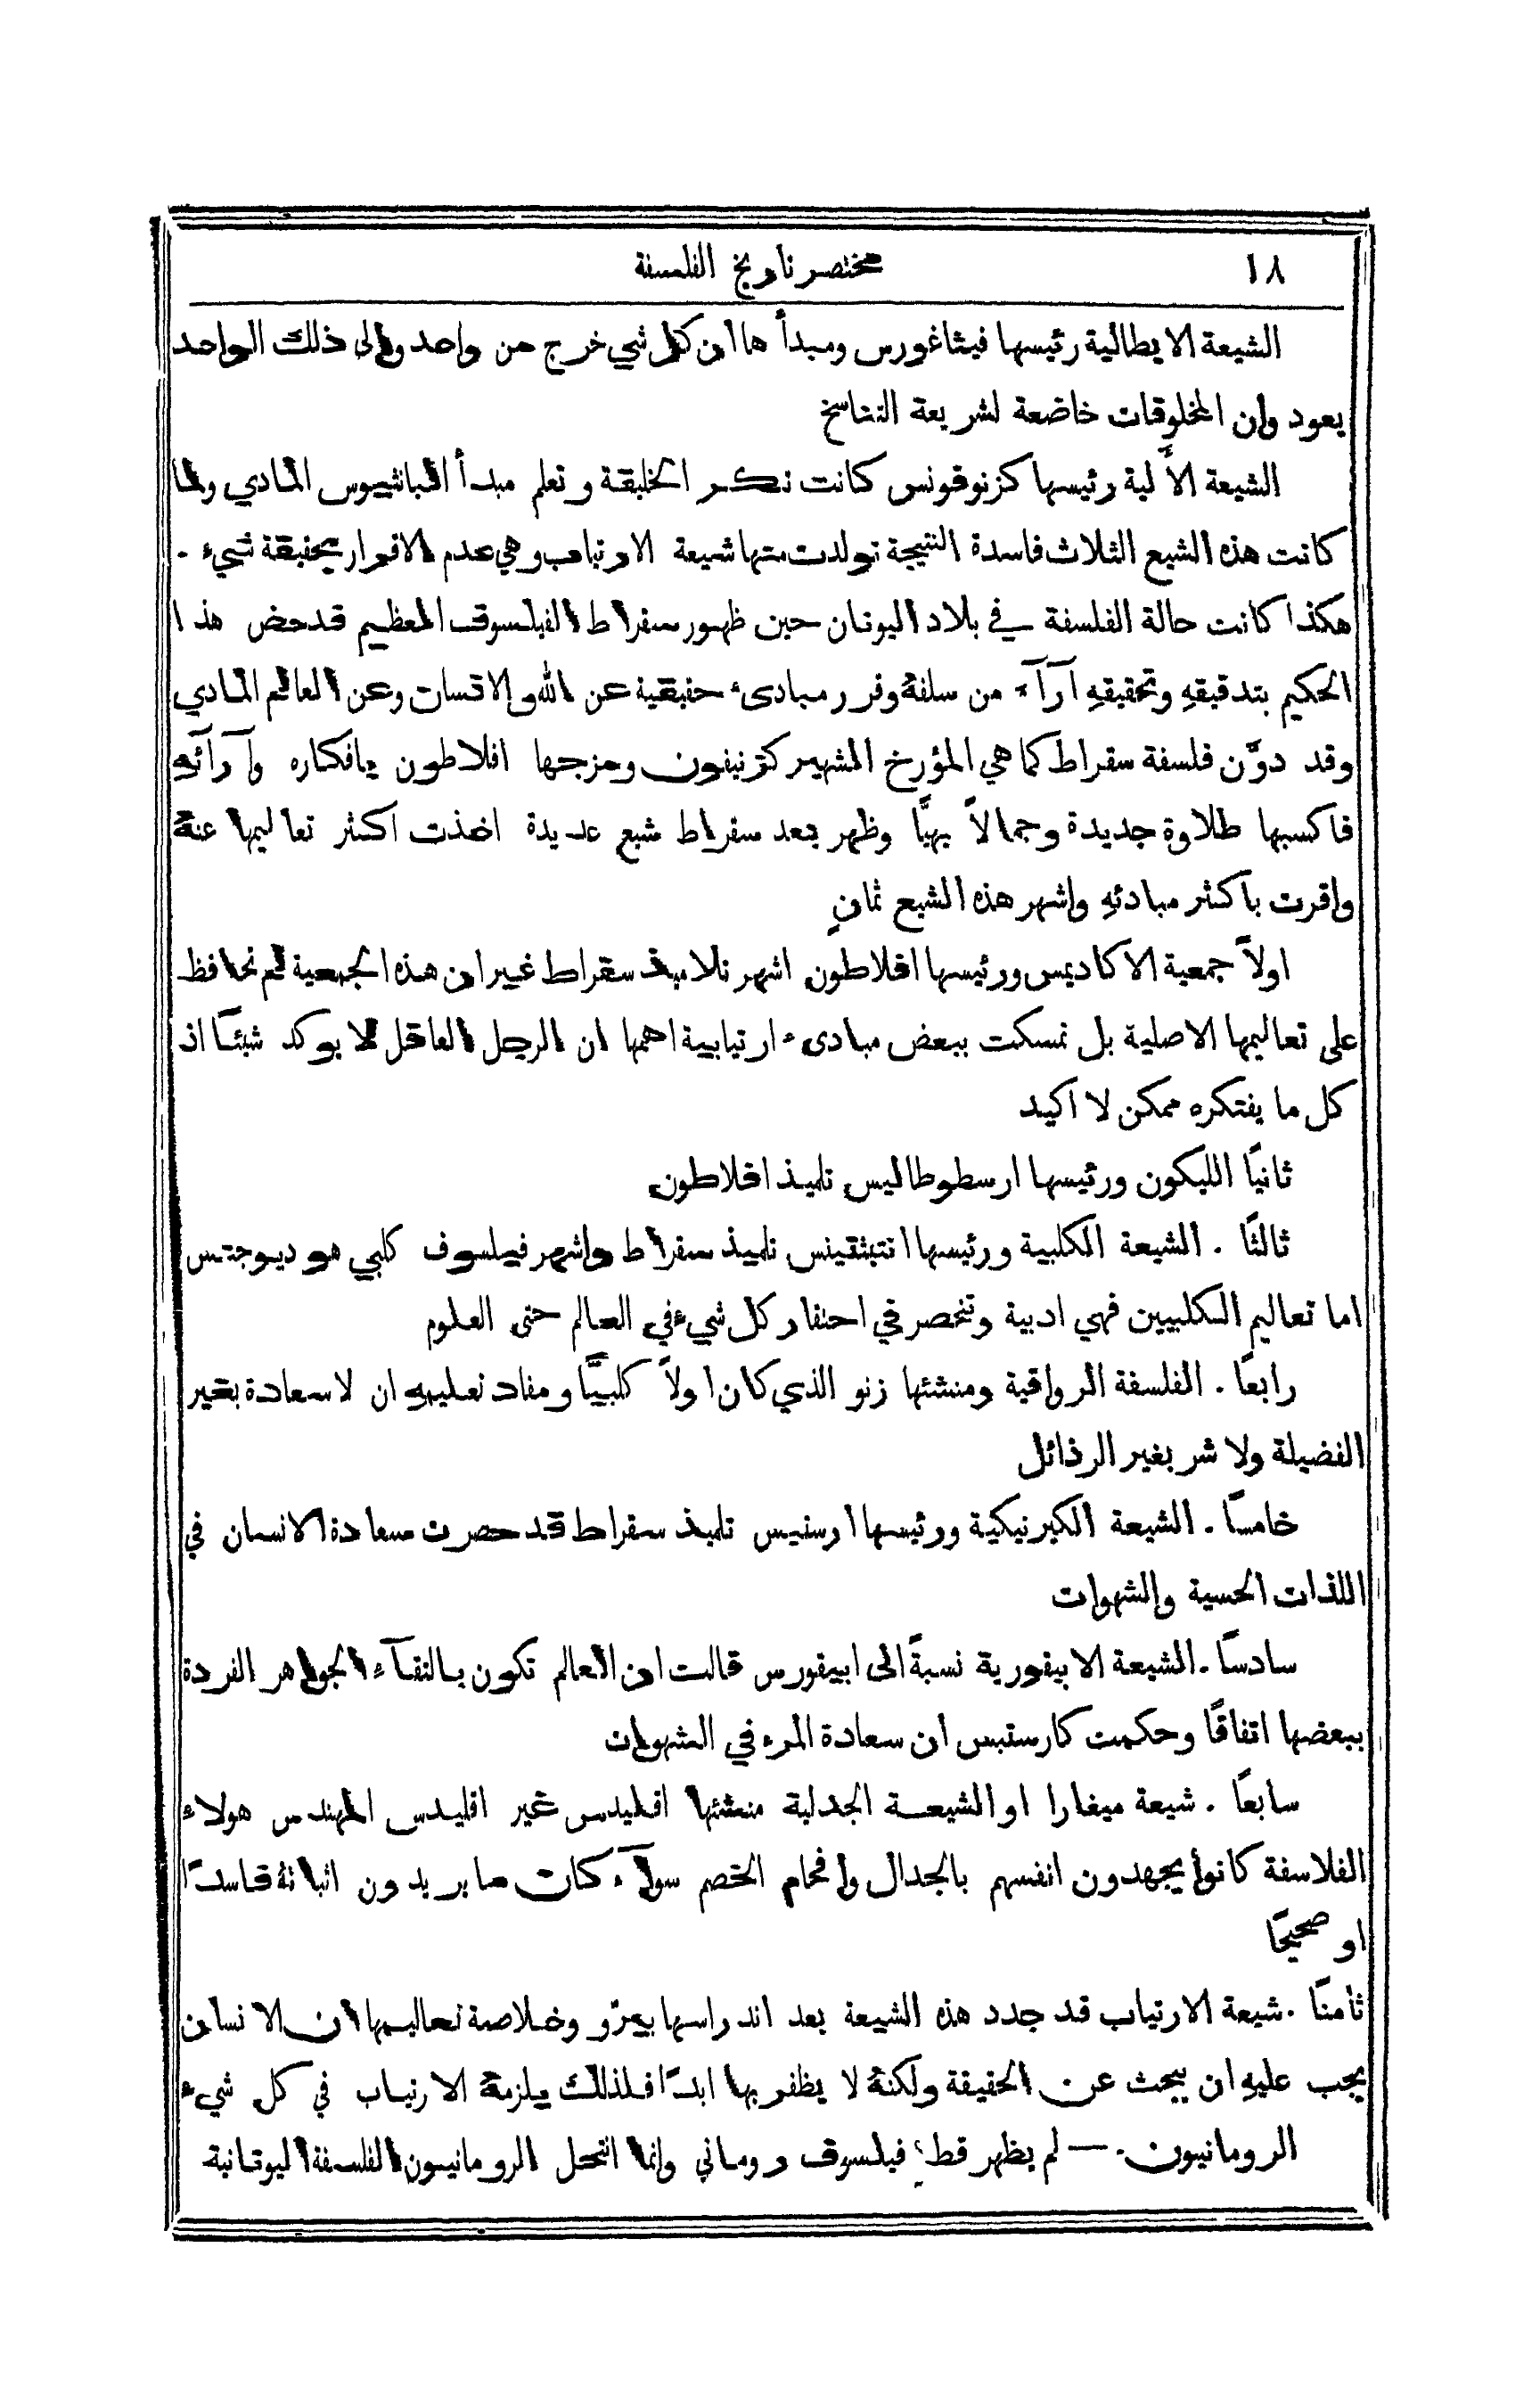 ١٨
مختصر تاريخ الفلسفة
الشيعة الايطالية رئيسها فيثاغورس ومبدأها ان كل شي خرج من واحد والى ذلك الواحد
يعود وان المخلوقات خاضعة لشريعة التناسخ
الشيعة الألية رئيسها كزنوفونس كانت تنكر الخليقة وتعلم مبدأ البانثيوس المادي ولما
كانت هذه الشيع الثلاث فاسدة النتيجة تولدت منها شيعة الارتياب وهي عدم الاقرار بحقيقة شيء .
هكذا كانت حالة الفلسفة في بلاد اليونان حين ظهور سقراط الفيلسوف العظيم فدحض هذا
الحكيم بتدقيقهِ وتحقيقهِ آرآء من سلفهُ وقرر مبادىء حقيقية عن الله والانسان وعن العالم المادي
وقد دوَّن فلسفة سقراط كما هي المؤرخ الشهير كزنيفون ومزجها افلاطون بافكاره وآرآئه
فاكسبها طلاوة جديدة وجمالاً بهيًّا وظهر بعد سقراط شيع عديدة اخذت اكثر تعاليمها عنهُ
واقرت باكثر مبادئهِ واشهر هذه الشيع ثمانٍ
اولاً جمعية الاكاديمس ورئيسها افلاطون اشهر تلاميذ سقراط غير ان هذه الجمعية لم تحافظ
على تعاليمها الاصلية بل تمسكت ببعض مبادىء ارتيابية اهمها ان الرجل العاقل لا يوكد شيئًا اذ
كل ما يفتكره ممكن لا اكيد
ثانيًا الليكون ورئيسها ارسطوطاليس تلميذ افلاطون
ثالثًا . الشيعة الكلبية ورئيسها انتيثقينس تلميذ سقراط واشهر فيلسوف كلبي هو ديوجنس
اما تعاليم الكلبيين فهي ادبية وتنحصر في احتقار كل شيء في العالم حتى العلوم
رابعًا . الفلسفة الرواقية ومنشئها زنو الذي كان اولاً كلبيًّا ومفاد تعليمهِ ان لا سعادة بغير
الفضيلة ولا شر بغير الرذائل
خامسًا . الشيعة الكيرنيكية ورئيسها ارستيس تلميذ سقراط قد حصرت سعادة الانسان في
اللذات الحسية والشهوات
سادسًا . الشيعة الابيقورية نسبةً الى ابيقورس قالت ان العالم تكون بالتقآء الجواهر الفردة
ببعضها اتفاقًا وحكمت كارستبس ان سعادة المرء في الشهوات
سابعًا . شيعة ميغارا او الشيعة الجدلية منشئها اقليدس غير اقليدس المهندس هولاء
الفلاسفة كانوا يجهدون انفسهم بالجدال وافحام الخصم سوآء كان ما يريدون اثباتهُ فاسدًا
او صحيحًا
ثامنًا . شيعة الارتياب قد جدد هذه الشيعة بعد اندراسها بيرّو وخلاصة تعاليمها ان الانسان
يجب عليهِ ان يبحث عن الحقيقة ولكنهُ لا يظفر بها ابدًا فلذلك يلزمهُ الارتياب في كل شيء
الرومانيون . — لم يظهر قط فيلسوف روماني وانما انتحل الرومانيون الفلسفة اليونانية